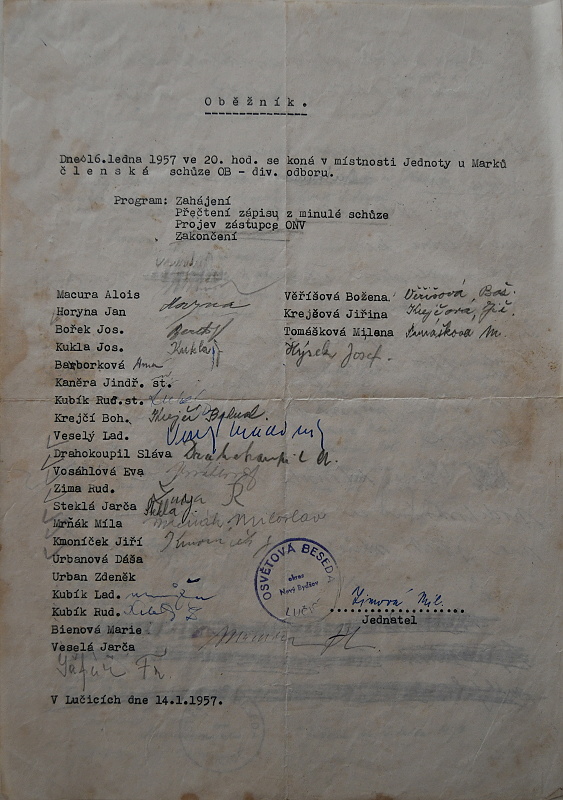 Oběžník.
Dne 16.ledna 1957 ve 20. hod. se koná v místnosti Jednoty u Marků
členská schůze OB - div. odboru.
Program: Zahájení
Přečtení zápisu z minulé schůze
Projev zástupce ONV
Zakončení
Macura Alois
Horyna Jan Horyna
Bořek Jos.
Kukla Jos. Kukla
Barborková Anna
Kaněra Jindř. st.
Kubík Rud.st.
Krejčí Boh. Krejčí Bohud.
Veselý Lad.
Drahokoupil Sláva Drahokoupil
Vosáhlová Eva
Zima Rud.
Steklá Jarča Stekla
Mrňák Míla Mrňák Miloslav
Kmoníček Jiří Kmoníček J
Urbanová Dáša
Urban Zdeněk
Kubík Lad.
Kubík Rud.
Bienová Marie
Veselá Jarča
Věříšová Božena Věříšová Bož.
Krejčová Jiřina Krejčová Jiř.
Tomášková Milena Tomášková M.
Kýsek Josef.
OSVĚTOVÁ BESEDA
okres
Nový Bydžov
Zimová Mil.
Jednatel
V Lučicích dne 14.1.1957.